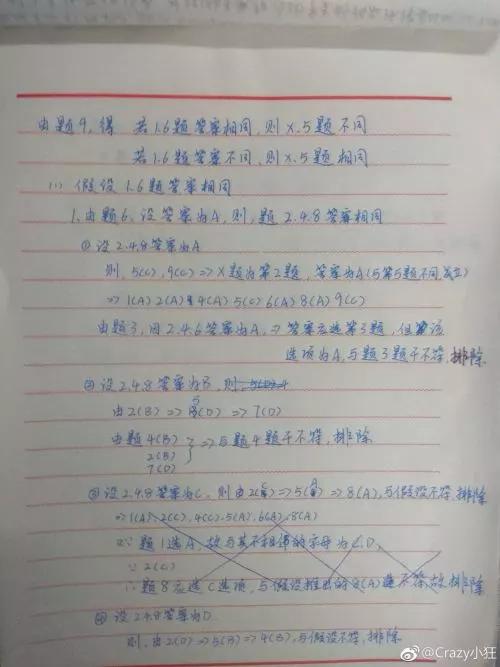 由题9,得 若1.6题答案相同,则X.5题不同
若1.6题答案不同,则X.5题相同
(1) 假设1.6题答案相同
1.由题6,设答案为A,则,题2.4.8答案相同
①设2.4.8答案为A
则,5(C),9(C)=>X题为第2题,答案为A(与第5题不同,成立)
=>1(A)2(A)4(A)5(C)6(A)8(A)9(C)
由题3,因2.4.6答案为A,=>答案应选第3题,但该
选项为A,与题3题干不符,排除
②设2.4.8答案为B,则
由2(B)=>5(D)=>7(D)
由题4(B)
2(B)
7(D)
=>与题4题干不符,排除
③设2.4.8答案为C,则由2(C)=>5(A)=>8(A),与假设不符,排除
=>1(A),2(C),4(C).5(A),6(A).8(A)
∵题1选A,故与其不相邻的字母为C.D,
∵2(C)
∴题8应选C选项,与假设推出的8(A)不符,故排除
④设2.4.8答案为D
则,由2(D)=>5(B)=>4(B),与假设不符,排除
@Crazy小狂